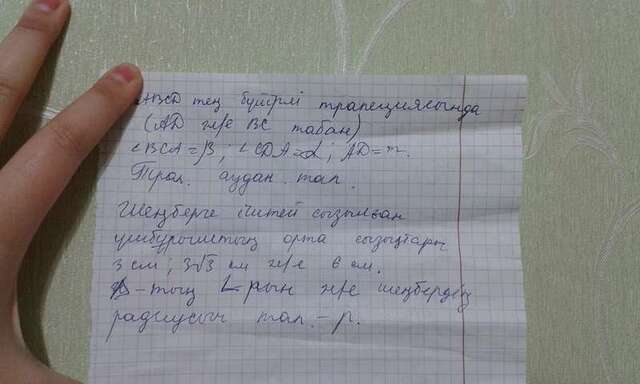 ABCD тең бүйірлі трапециясында
(AD ж/е BC табан)
∠BCA=β; ∠CDA=α; AD=m.
Трап. ауданын тап.
Шеңберге іштей сызылған
үшбұрыштың орта сызықтары
3 см; 3√3 см ж/е 6 см.
Δ-тың ∠рын ж/е шеңбердің
радиусын тап. - р.